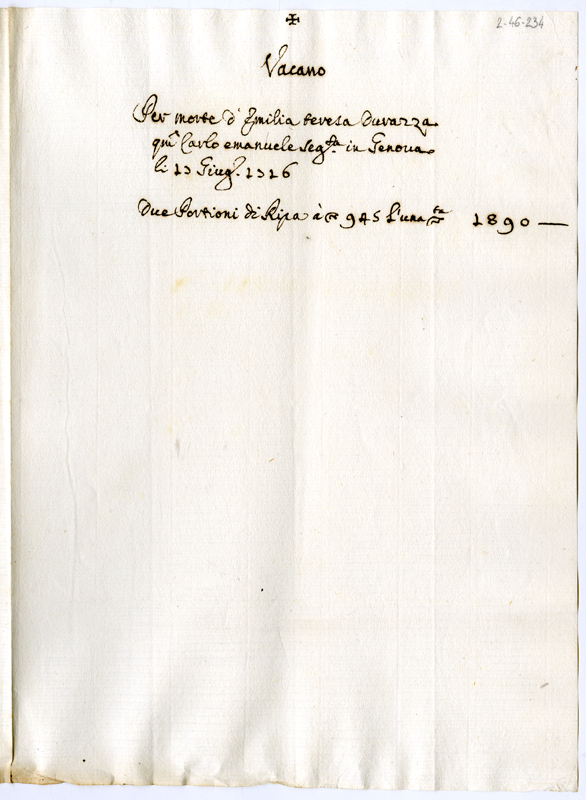 ✠
2-46-234
Vacano
Per morte d'Emilia teresa Durazza
qm Carlo emanuele seg.ta in Genova
li 13 Giug.o 1716
Due Portioni di Ripa à 945 l'una 1890 —